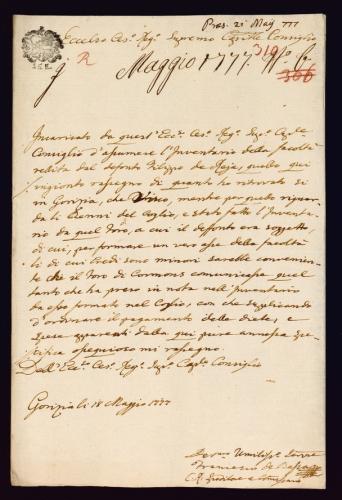 Pres. 21 Maij 777
Eccelso Ces.º Reg.º Supremo Cap.le Consiglio
R
Maggio 1777. Nº 6
319
366
Incaricato da quest' Ecc.º Ces.º Reg.º Sup.º Cap.le
Consiglio d'assumere l'Inventario della facoltà
relitta dal defonto Filippo de, quello qui
aggionto rassegno di quanto ho ritrovato sì
in Gorizia, che, mentre per quello riguar
da li Beni del Coglio, è stato fatto l'Inventa
rio da quel Foro, a cui il defonto era soggetto,
di cui, per formare un vero asse della facoltà
li di cui Eredi sono minori sarebbe convenien
te che il Foro di Cormons comunicasse quel
tanto che ha preso in nota nell'Inventario
da esso formato nel Coglio, con che supplicando
d'ordinare il pagamento delle diete, e
spese apparenti dalla qui pure annessa spe
cifica ossequioso mi rassegno.
Dall' Ecc.º Ces.º Reg.º Sup.º Cap.le Consiglio
Gorizia li 18 Maggio 1777
Umiliss.º
Francesco de